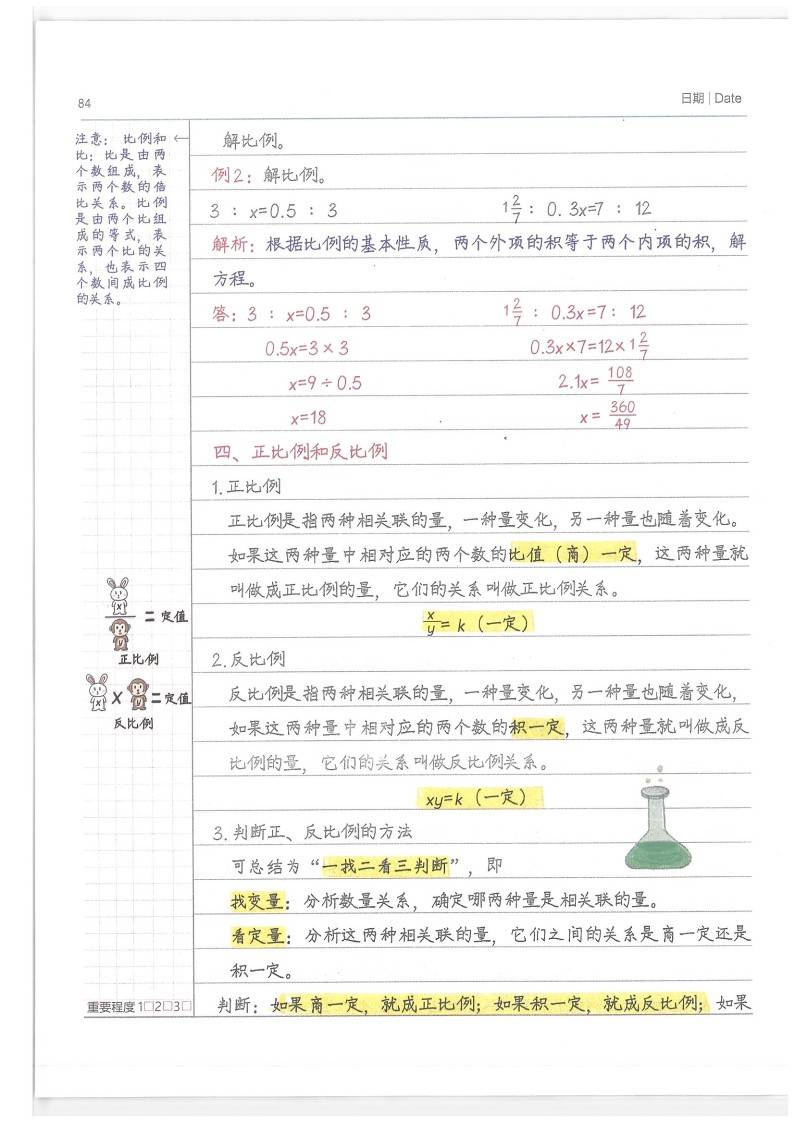 84
日期 | Date
注意：比例和
比：比是由两
个数组成，表
示两个数的倍
比关系。比例
是由两个比组
成的等式，表
示两个比的关
系，也表示四
个数间成比例
的关系。
←
解比例。
例2：解比例。
3 : x=0.5 : 3    1 2/7 : 0.3x=7 : 12
解析：根据比例的基本性质，两个外项的积等于两个内项的积，解
方程。
答：3 : x=0.5 : 3    1 2/7 : 0.3x=7 : 12
0.5x=3×3    0.3x×7=12×1 2/7
x=9÷0.5    2.1x= 108/7
x=18    x= 360/49
四、正比例和反比例
1.正比例
正比例是指两种相关联的量，一种量变化，另一种量也随着变化。
如果这两种量中相对应的两个数的比值（商）一定，这两种量就
叫做成正比例的量，它们的关系叫做正比例关系。
x/y = k（一定）
x
y
=定值
正比例
2.反比例
反比例是指两种相关联的量，一种量变化，另一种量也随着变化，
如果这两种量中相对应的两个数的积一定，这两种量就叫做成反
比例的量，它们的关系叫做反比例关系。
x × y =定值
反比例
xy=k（一定）
3.判断正、反比例的方法
可总结为“一找二看三判断”，即
找变量：分析数量关系，确定哪两种量是相关联的量。
看定量：分析这两种相关联的量，它们之间的关系是商一定还是
积一定。
判断：如果商一定，就成正比例；如果积一定，就成反比例；如果
重要程度 1□2□3□